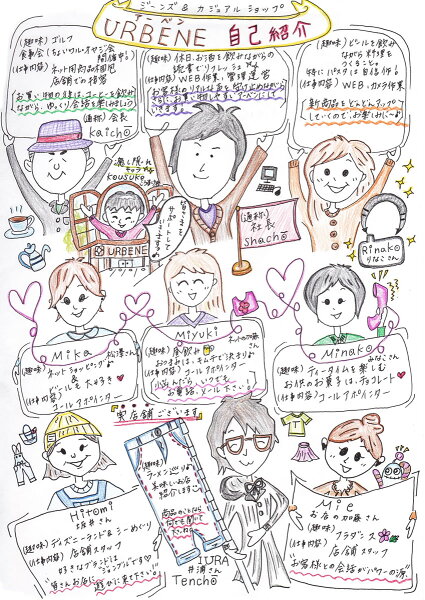 ジーンズ & カジュアル ショップ
アーベン
URBENE 自己紹介
(趣味) ゴルフ
食事会 (ちょいワル・オヤジ会
開催中!)
(仕事内容) ネット用商品補充
店舗での接客
お買い物の時は、コーヒーを飲み
ながら、ゆっくり会話を楽しみましょう
(通称) 会長
kaichō
(趣味) 休日、お酒を飲みながらの
読書でリフレッシュ
(仕事内容) WEB作業、管理運営
お客様のリアルな声を受け止めながら
(通称)
社長
shachō
(趣味) ビールを飲み
ながら料理を
つくること。
特にパスタは自信作!
(仕事内容) WEB・カメラ作業
新商品をどんどんアップ
していくので、お楽しみに〜♪
Rinako
りなこさん
癒し隊れ
キャラ
KOUSUKE
URBENE
Mika
松澤さん
(趣味) ネットショッピング
&
ビールも大好き
(仕事内容)
コールアポインター
Miyuki
ネットの加藤さん
(趣味) 昼飲み
おつまみは、キムチで決まり♪
(仕事内容) コールアポインター
お電話、メール下さい!
Minako
みなこさん
(趣味) ティータイムを楽しむ
お供のお菓子は、チョコレート
(仕事内容)
コールアポインター
実店舗ございます
Hitomi
坂井さん
(趣味) ディズニーランド&シーめぐり
(仕事内容) 店舗スタッフ
(趣味)
ラーメン巡り
美味しいお店
紹介します
商品のことなら
IURA
井浦さん
Tenchō
Mie
お店の加藤さん
(趣味)
フラダンス
(仕事内容)
店舗スタッフ
お客様との会話がパワーの源